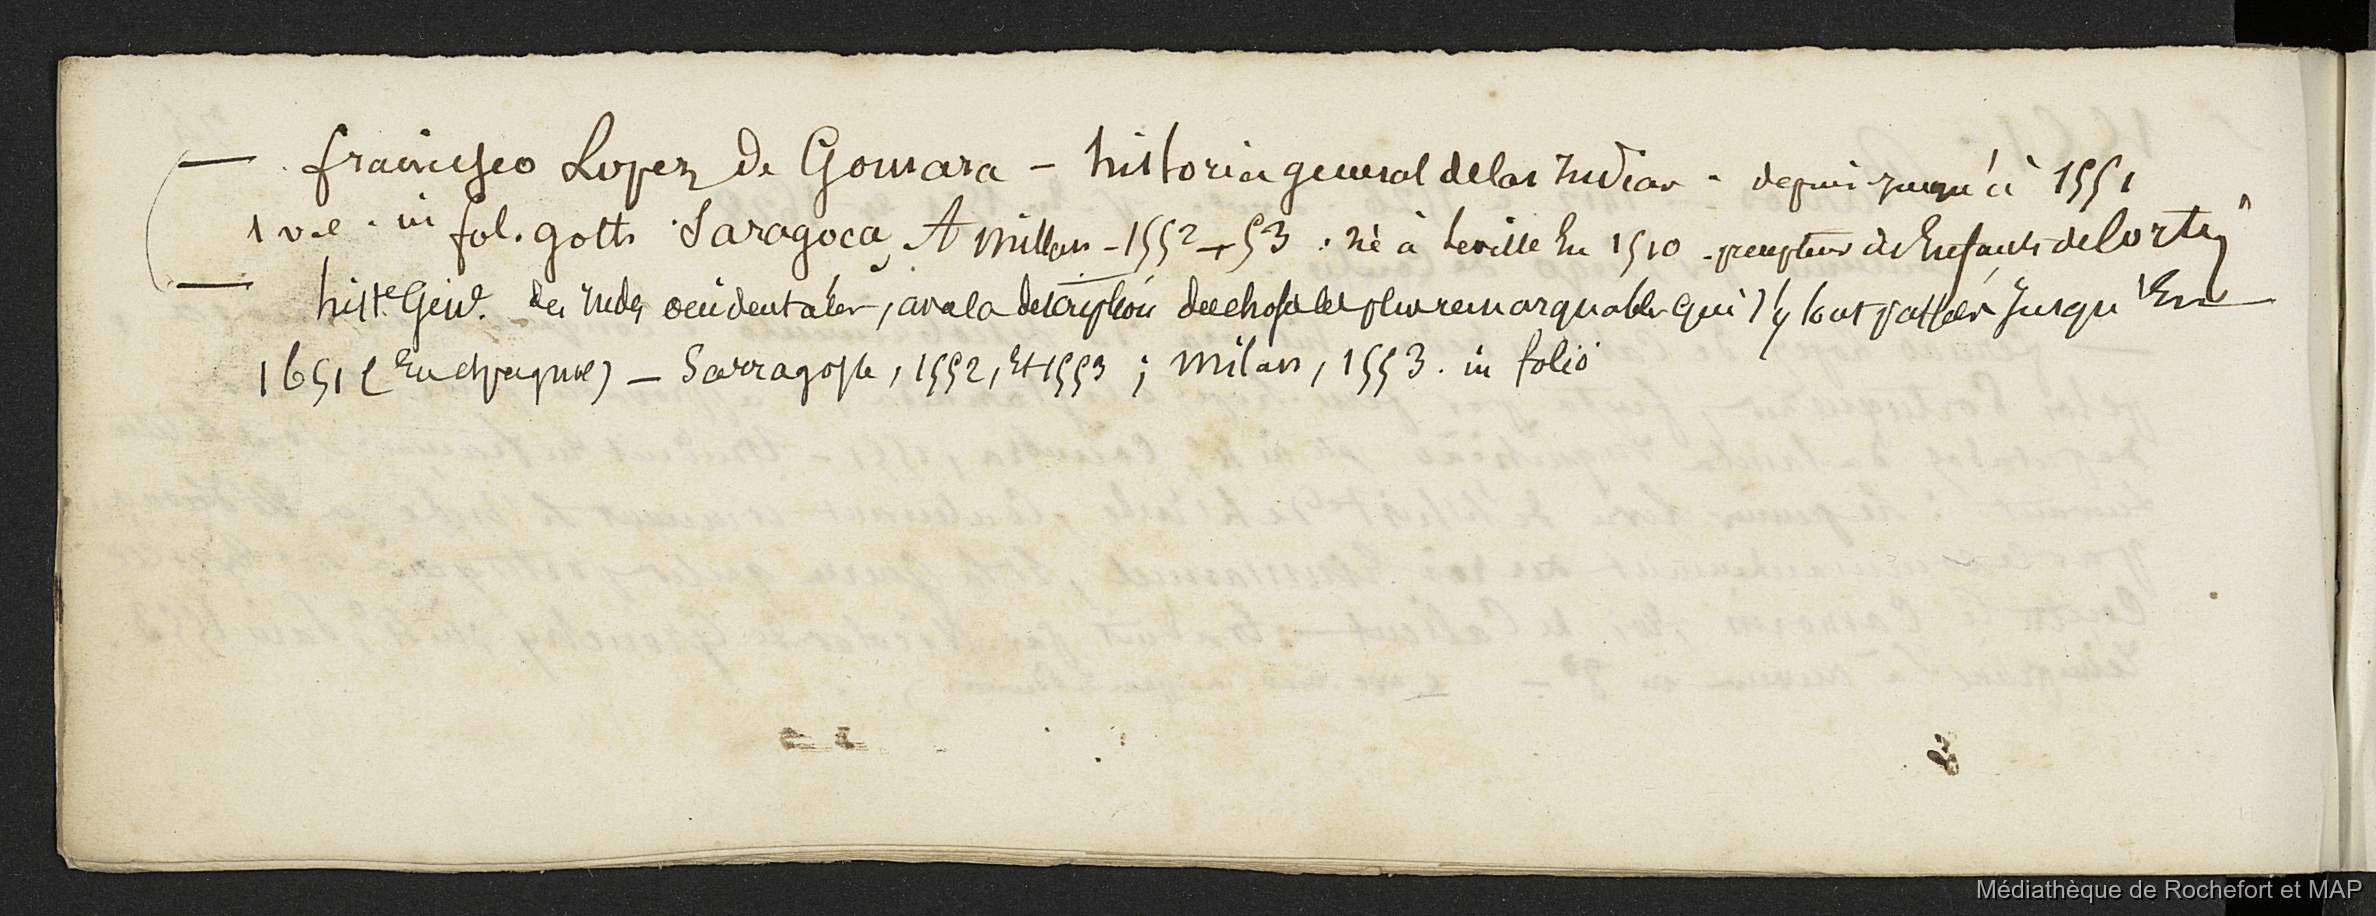 — . francisco Lopez de Gomara - historia general de las indias - depuis jusqu'à 1551
1 vol. in fol. goth Saragoça, A millan - 1552 - 53 . né à Seville En 1510 - precepteur des Enfants de Cortez
— histe. Genle. des indes occidentales, avec la description des choses les plus remarquables qui s'y sont passées jusqu'en
1651 (En espagnol) — Sarragosse, 1552, et 1553 ; milan, 1553. in folio
Médiathèque de Rochefort et MAP